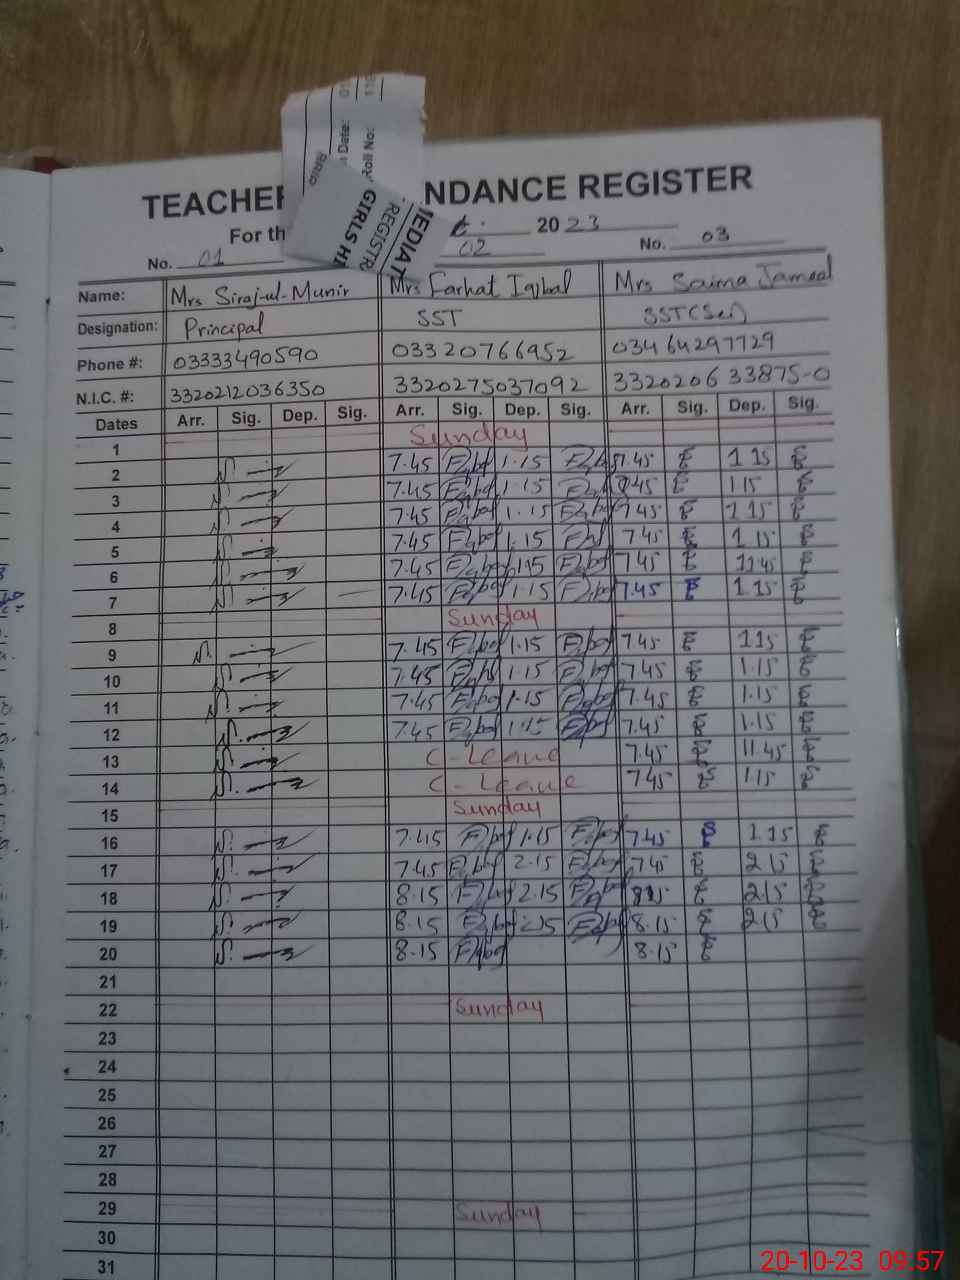 TEACHER
NDANCE REGISTER
For th
2023
No. 01
02
No. 03
Date:
Roll No:
GIRLS HI
REGISTR
MEDIAT
Name: Mrs Siraj-ul-Munir Mrs Farhat Iqbal Mrs Saima Jameel
Designation: Principal SST SST(Sci)
Phone #: 03333490590 03320766952 03464297729
N.I.C. #: 3320212036350 3320275037092 3320206 33875-0
Dates Arr. Sig. Dep. Sig. Arr. Sig. Dep. Sig. Arr. Sig. Dep. Sig.
1 Sunday
2 7.45 1.15 7.45 1 15
3 7.45 1.15 7.45 1 15
4 7.45 1.15 7 45 1 15
5 7.45 1.15 7.45 1 15
6 7.45 1.15 7.45 11 45
7 7.45 1.15 7.45 1.15
8 Sunday
9 7.45 1.15 7.45 1.15
10 7.45 1.15 7.45 1.15
11 7.45 1.15 7.45 1.15
12 7.45 1.15 7.45 1.15
13 C-Leave 7.45 11.45
14 C-Leave 7.45 1.15
15 Sunday
16 7.45 1.15 7.45 1.15
17 7.45 2.15 7.45 2 15
18 8.15 2.15 8 15 2 15
19 8.15 8.15 2 15
20 8.15 8.15
21
22 Sunday
23
24
25
26
27
28
29 Sunday
30
31
20-10-23 09.57